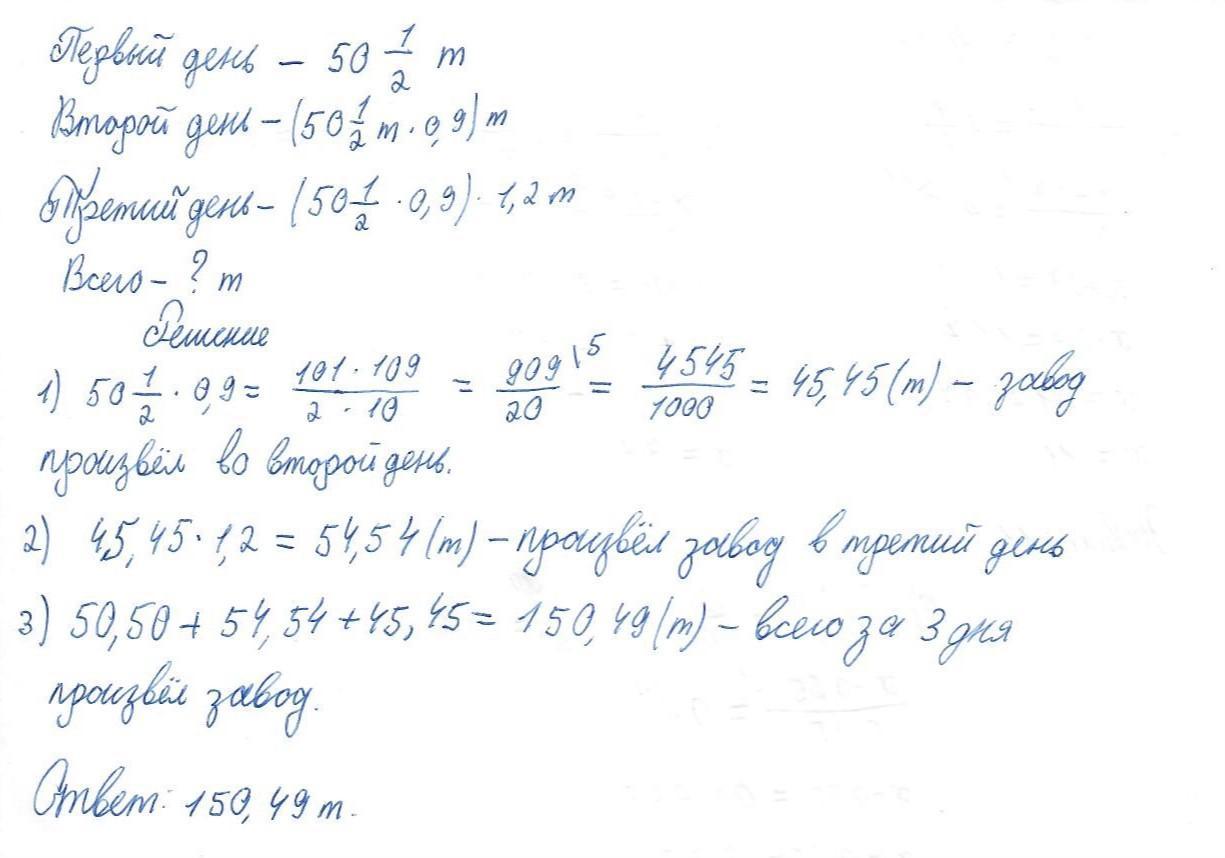 Первый день – 50 1/2 т
Второй день – (50 1/2 т · 0,9) т
Третий день – (50 1/2 · 0,9) · 1,2 т
Всего – ? т
Решение
1) 50 1/2 · 0,9 = 101 · 109 / 2 · 10 = 909 \5 / 20 = 4545 / 1000 = 45,45 (т) – завод
произвёл во второй день.
2) 45,45 · 1,2 = 54,54 (т) – произвёл завод в третий день
3) 50,50 + 54,54 + 45,45 = 150,49 (т) – всего за 3 дня
произвёл завод.
Ответ: 150,49 т.